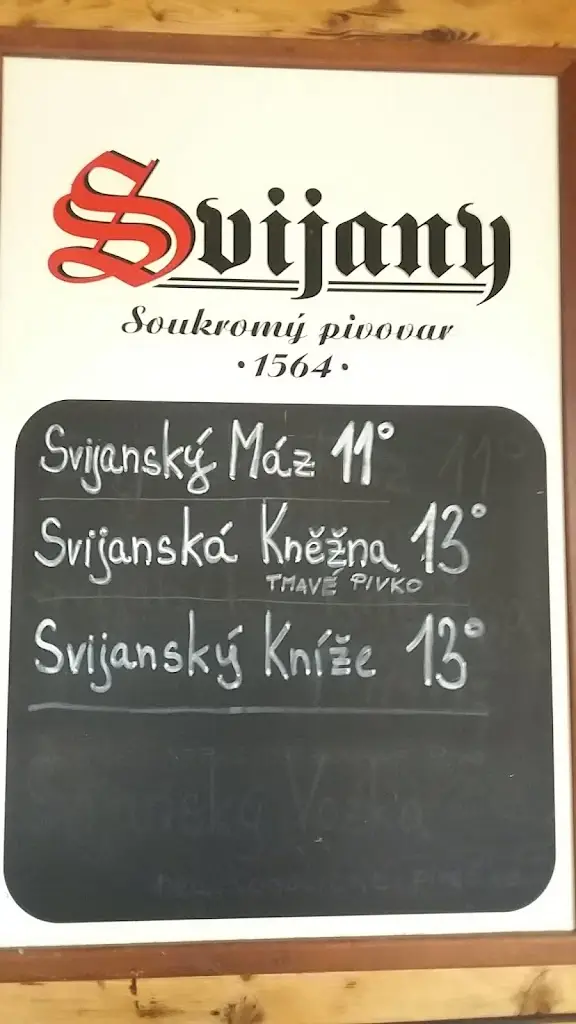 Svijany
Soukromý pivovar
·1564·
Svijanský Máz 11°
Svijanská Kněžna 13°
TMAVÉ PIVKO
Svijanský Kníže 13°